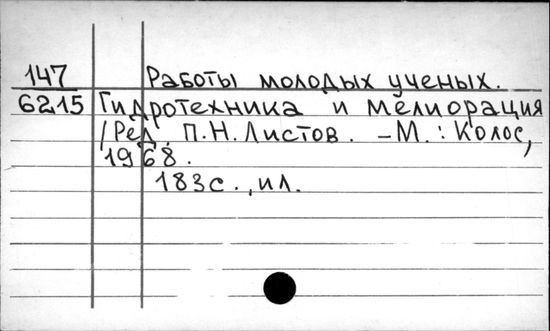 147 Работы молодых ученых.
6215 Гидротехника и мелиорация
/Ред. П.Н.Листов. –М.: Колос,
1968.
183с., ил.